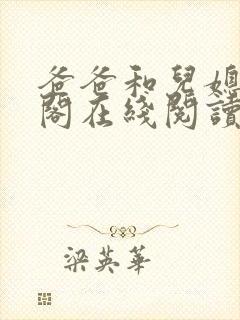 爸爸和兒媳
閣在綫閱讀
梁英華